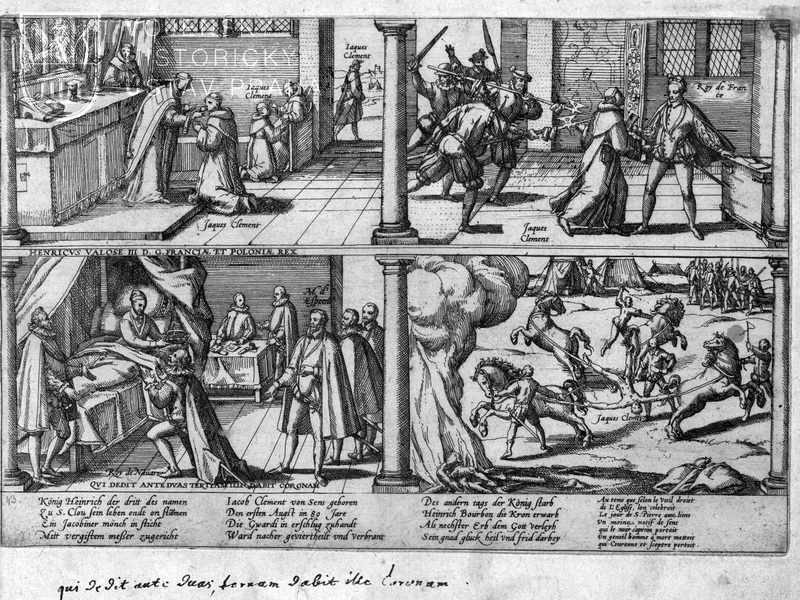 HISTORICKÝ
ÚSTAV PRAHA
Jaques
Clement
Jaques
Clement
Jaques Clement
Roy de Fran
ce
Jaques
Clement
HENRICVS VALOSE III D. G. FRANCIÆ ET POLONIÆ REX
Roy de Navare
QVI DEDIT ANTE DVAS TERTIAM ILLE DABIT CORONAM
Jaques Clement
König Heinrich der dritt dis namen
Zu S. Clou sein leben endt on stämen
Ein Jacobiner mönch in sticht
Mitt vergiftem messer zugericht
Iacob Clement von Sens geboren
Den ersten Augst in 89 Jare
Die Gwardi in erschlug zuhandt
Ward nacher geviertheilt und verbrant
Des andern tags der König starb
Heinrich Bourbon die Kron erwarb
Als nechster Erb dem Gott verleyh
Sein gnad glück heil und frid darbey
de L'Eglise, l'on celebroit
Le jour de S. Pierre
Vn moine, natif de sens
Vn gentil homme à mort mettoit
qui Couronne et sceptre portoit.
qui dedit ante duas, ternam dabit ille Coronam.